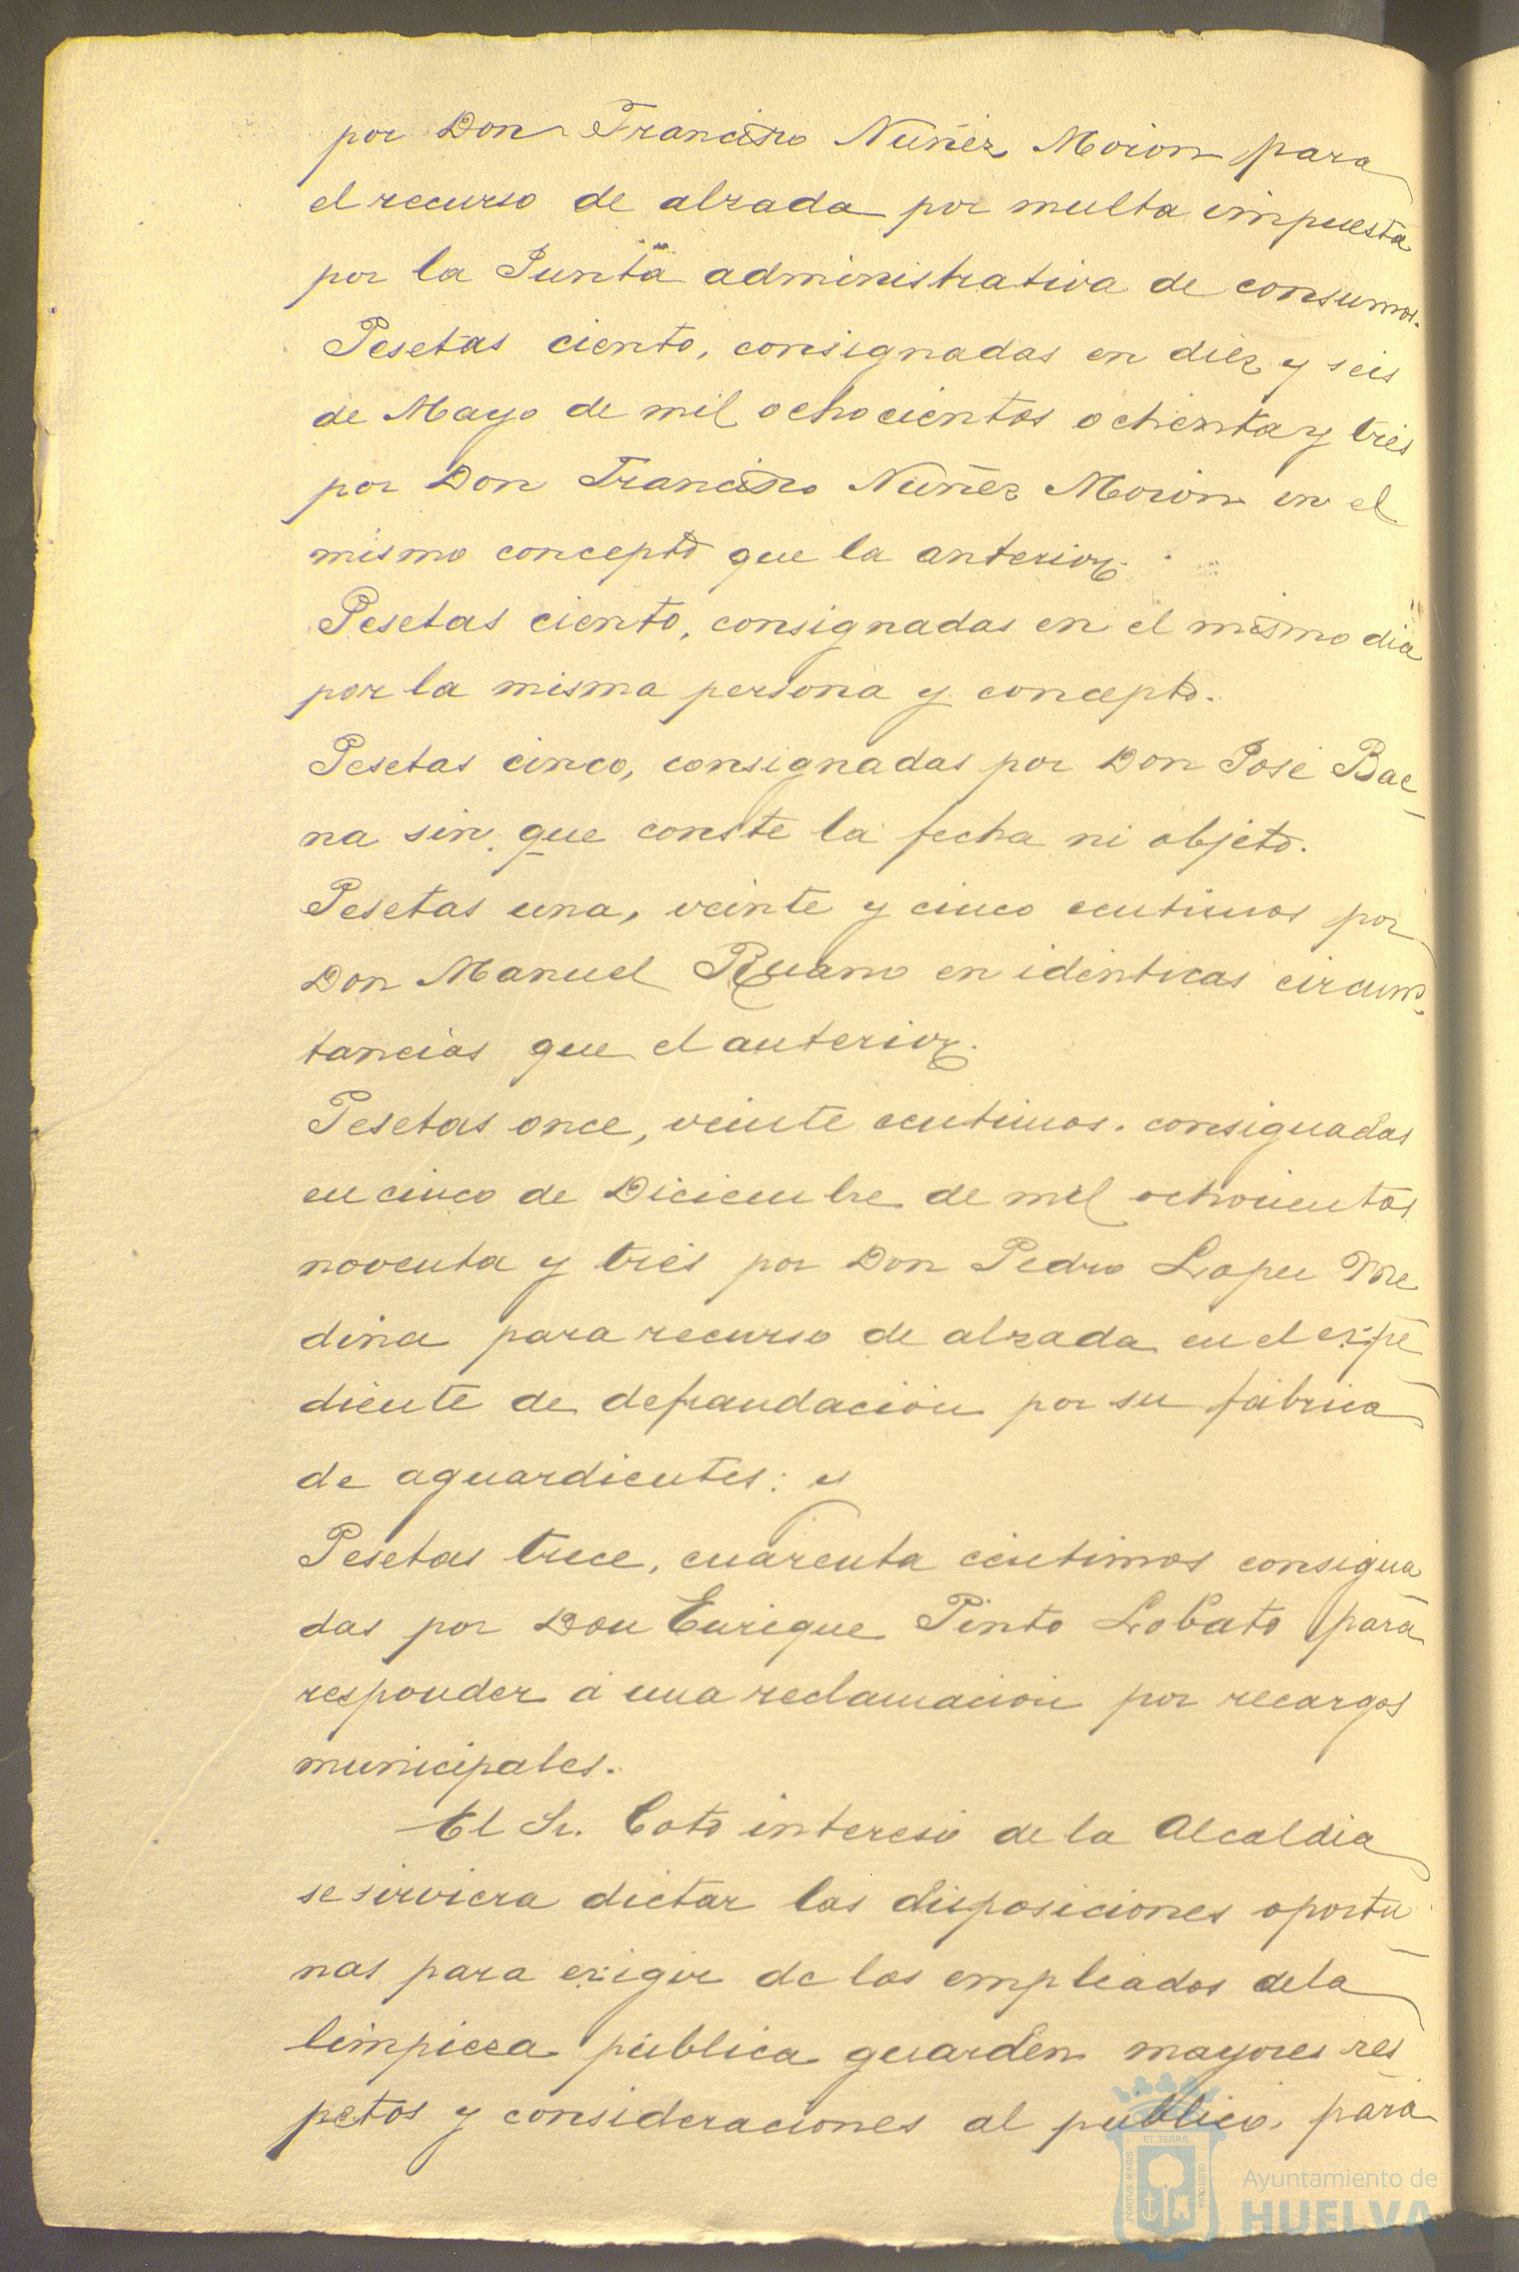 por Don Francisco Nuñez Moron para
el recurso de alzada por multa impuesta
por la Junta administrativa de consumos.
Pesetas ciento, consignadas en diez y seis
de Mayo de mil ochocientos ochenta y tres
por Don Francisco Nuñez Moron en el
mismo concepto que la anterior.
Pesetas ciento, consignadas en el mismo dia
por la misma persona y concepto.
Pesetas cinco, consignadas por Don José Bae
na sin que conste la fecha ni objeto.
Pesetas una, veinte y cinco centimos por
Don Manuel Ruano en identicas circuns-
tancias que el anterior.
Pesetas once, veinte centimos. consignadas
en cinco de Diciembre de mil ochocientos
noventa y tres por Don Pedro Lopez Me
dina para recurso de alzada en el expe
diente de defraudación por su fábrica
de aguardientes: y
Pesetas trece, cuarenta centimos consigna
das por Don Enrique Pinto Lobato para
responder á una reclamacion por recargos
municipales.
El Sr. Coto interesó de la Alcaldia
se sirviera dictar las disposiciones oportu
nas para exigir de los empleados dela
limpieza pública guarden mayores res
petos y consideraciones al publico, para
PORTUS MARIS ET TERRÆ CUSTODIA
Ayuntamiento de
HUELVA